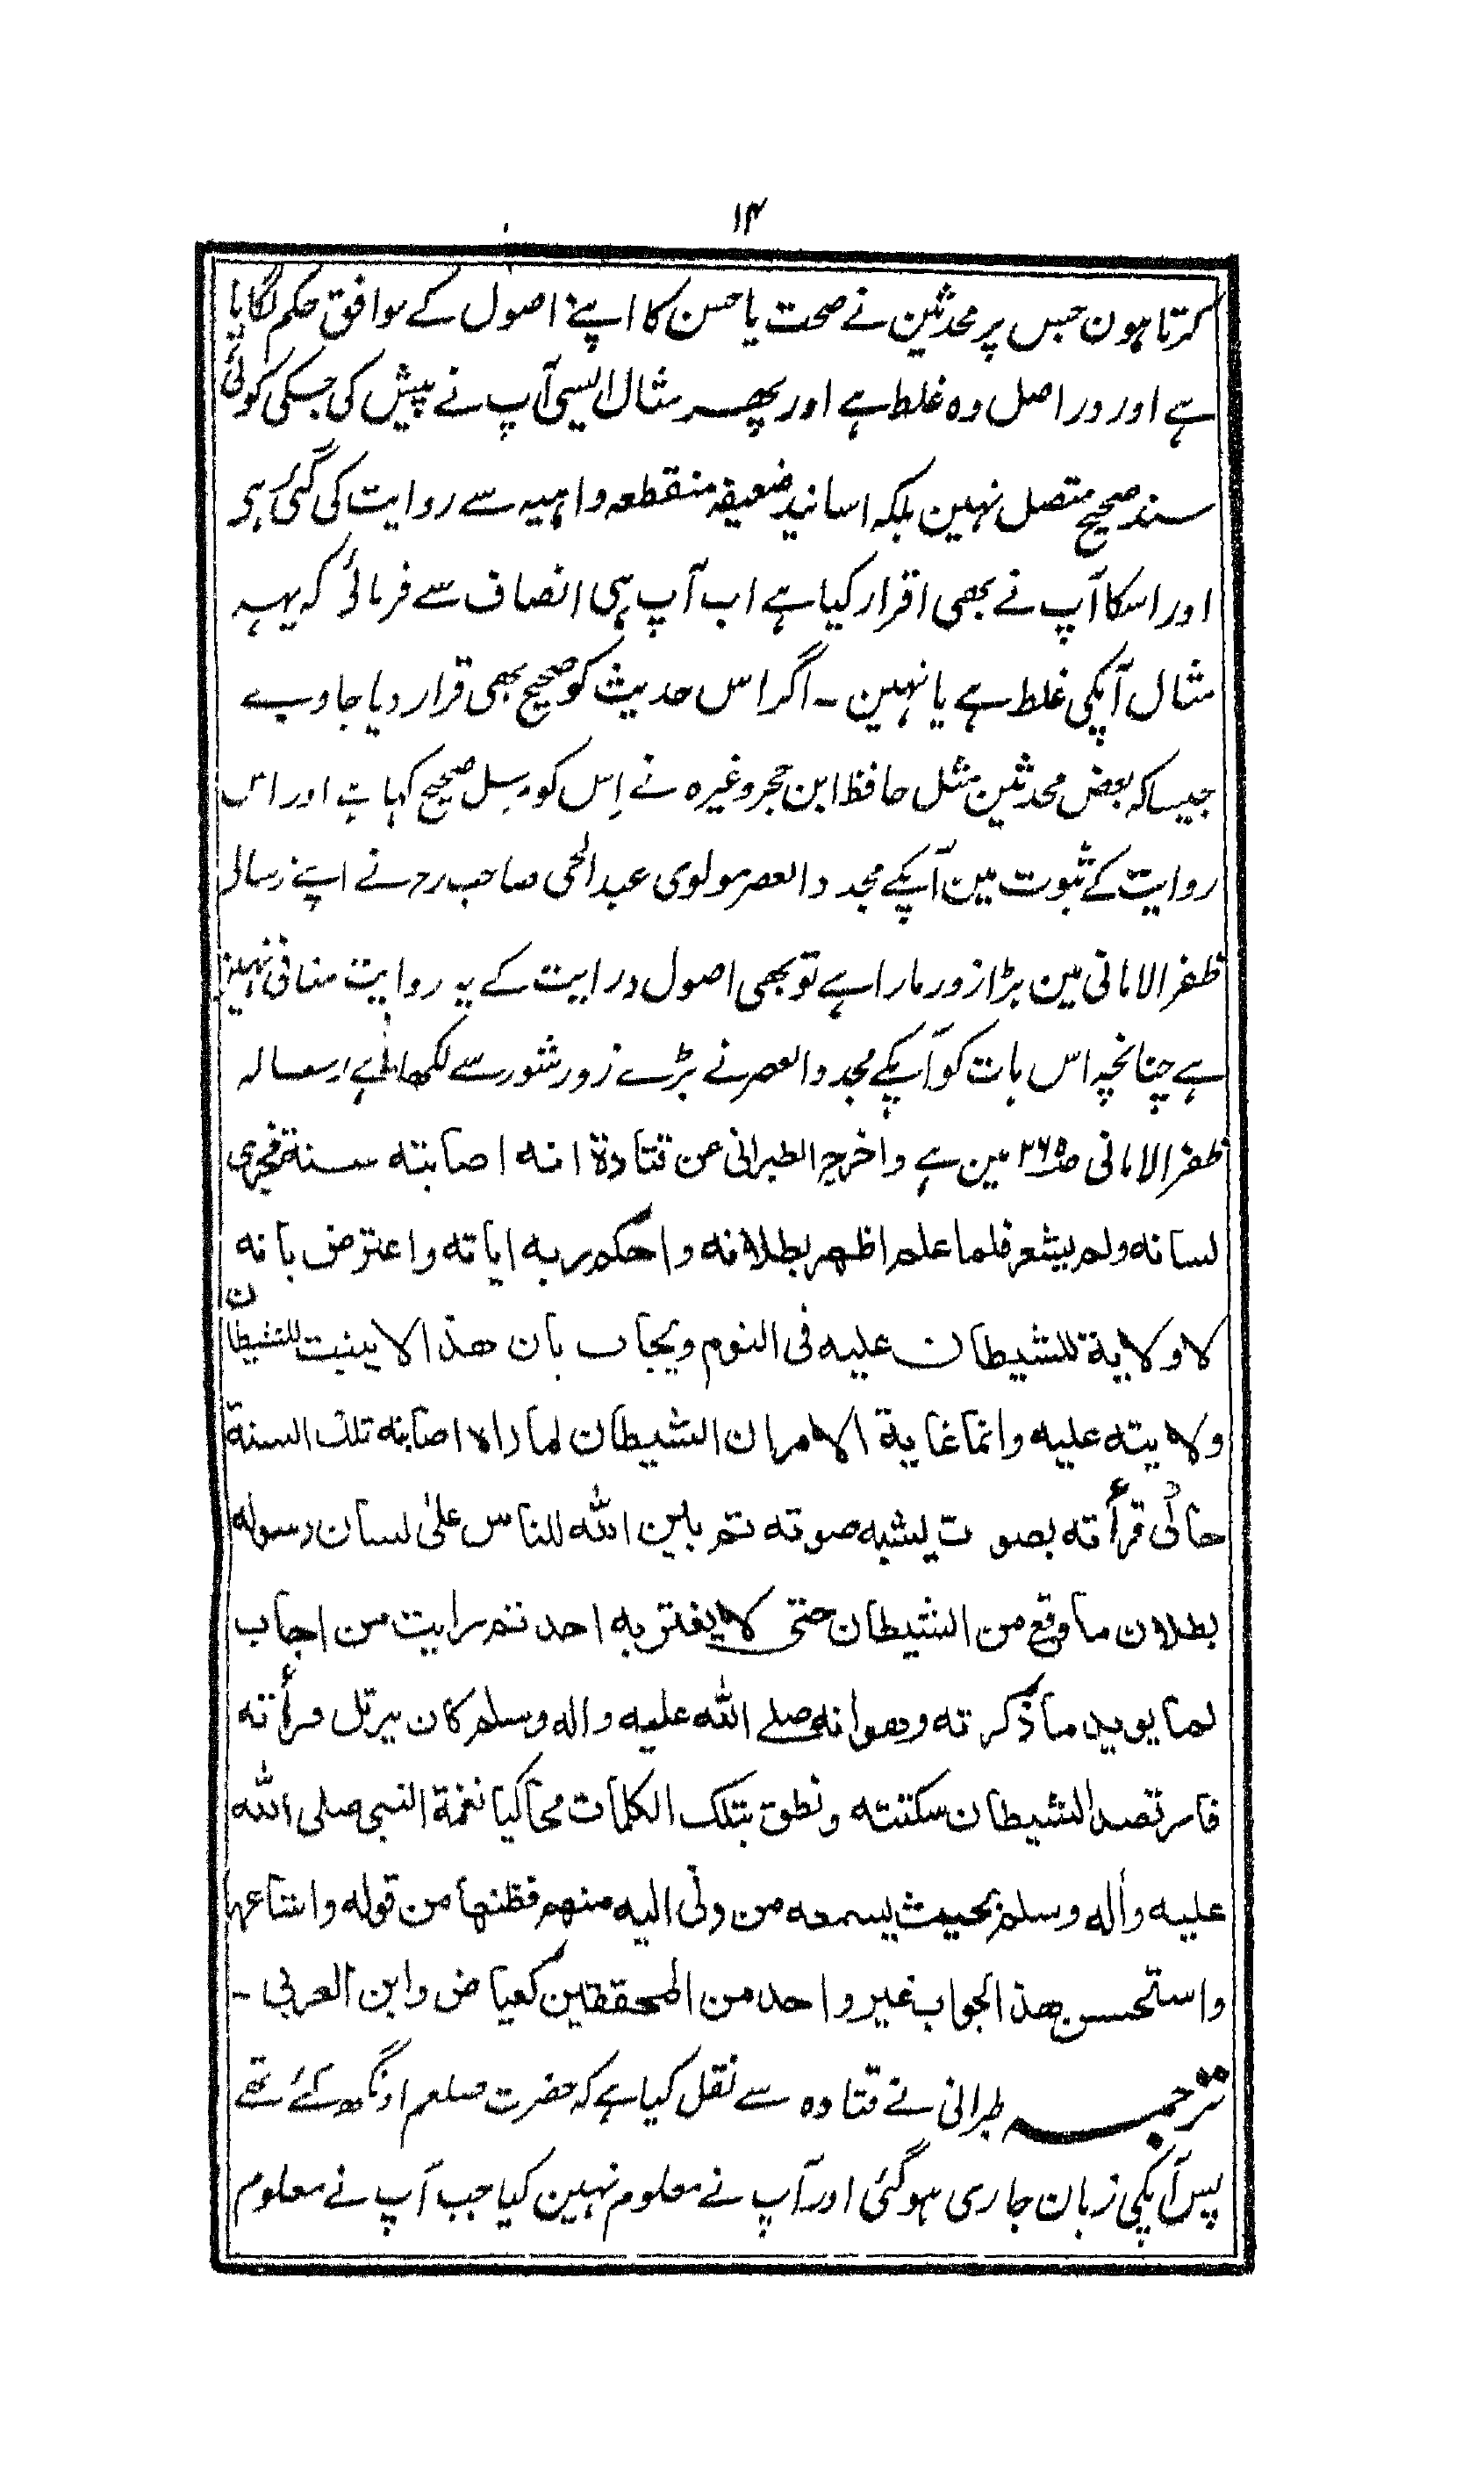 ۱۴
کرتا ہون جس پر محدثین نے صحت یا حسن کا اپنے اصول کے موافق حکم لگایا
ہے اور در اصل وہ غلط ہے اور پھر مثال ایسی آپ نے پیش کی جسکی کوئی
سند صحیح متصل نہین بلکہ اسانید ضعیفہ منقطعہ واہیہ سے روایت کی گئی ہی
اور اسکا آپ نے بھی اقرار کیا ہے اب آپ ہی انصاف سے فرمائی کہ یہہ
مثال آپکی غلط ہے یا نہین ۔ اگر اس حدیث کو صحیح بھی قرار دیا جاوے
جیسا کہ بعض محدثین مثل حافظ ابن حجر وغیرہ نے اِس کو مرسل صحیح کہا ہے اور اس
روایت کے ثبوت مین آپکے مجدد العصر مولوی عبد الحی صاحب رح نے اپنے رسالہ
ظفر الامانی مین بڑا زور مارا ہے تو بھی اصول درایت کے یہ روایت منافی نہین
ہے چنانچہ اس بات کو آپکے مجدد العصر نے بڑے زور شور سے لکھا ہے رسالہ
ظفر الامانی صـ۲۶۵ مین ہے واخرج الطبرانی عن قتادة انه اصابته سنة فجری
لسانه ولم یشعر فلما علم اظهر بطلانه واحکم ربه ایاته واعترض بانه
لا ولایة للشیطان علیه فی النوم ویجاب بان هذا لا یثبت للشیطان
ولایته علیه وانما غایة الامر ان الشیطان لما راه اصابته تلک السنة
حاکی قرأته بصوت یشبه صوته ثم بین الله للناس علی لسان رسوله
بطلان ما وقع من الشیطان حتی لا یغتر به احد ثم رایت من اجاب
لما یوید ما ذکرته وهوانه صلے الله علیه واله وسلم کان یرتل قرأته
فارتصد الشیطان سکتته ونطق بتلک الکلمات محاکیا نغمة النبی صلی الله
علیه وأله وسلم بحیث یسمعه من دنی الیه منهم فظنها من قوله واشاعها
واستحسن هذ الجواب غیر واحد من المحققین کعیاض وابن العربی ۔
ترجمہ طبرانی نے قتادہ سے نقل کیا ہے کہ حضرت صلعم اونگھ گئے تھے
پس آپکی زبان جاری ہو گئی اور آپ نے معلوم نہین کیا جب آپ نے معلوم